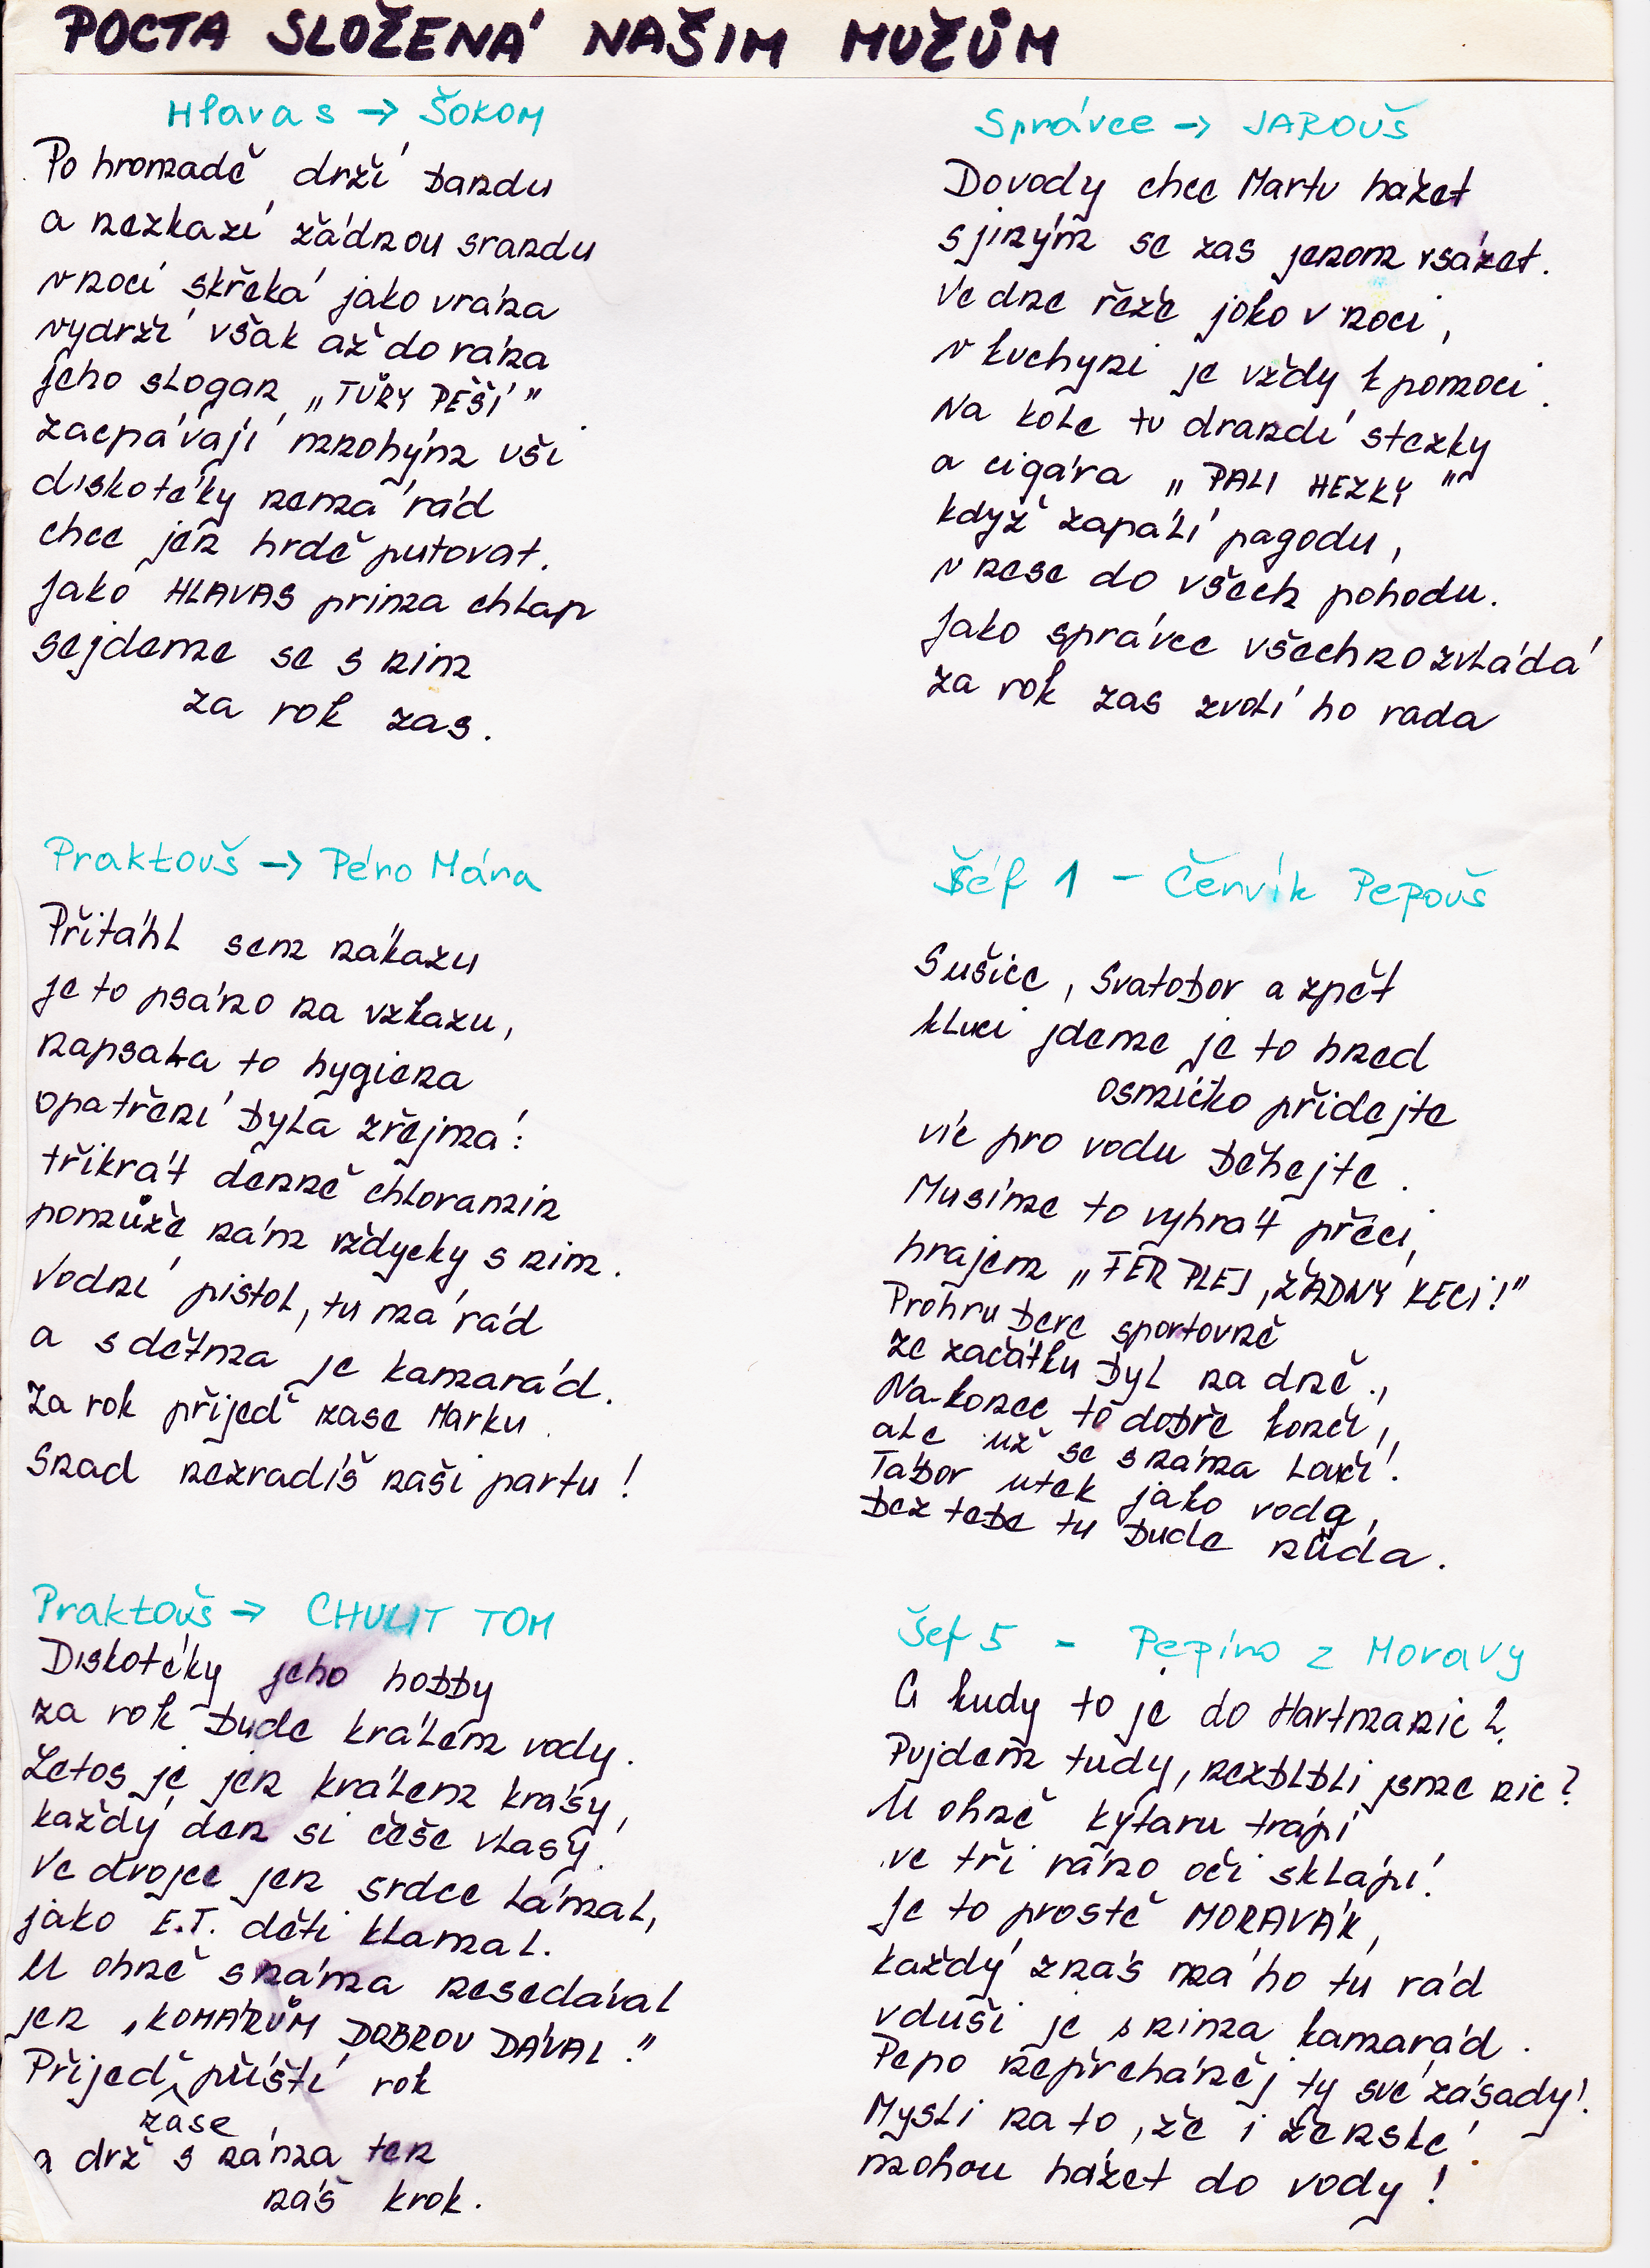 POCTA SLOŽENÁ NAŠIM MUŽŮM
Hlavas → ŠOKOM
Po hromadě drží bandu
a nezkazí žádnou srandu
v noci skřeká jako vrána
vydrží však až do rána
jeho slogan „TŮRY PĚŠÍ"
zacpávají mnohým uši
diskotéky nemá rád
chce jen hrdě putovat.
Jako HLAVAS prima chlap
sejdeme se s ním
za rok zas.
Praktouš → Péro Mára
Přitáhl sem nákazu
je to psáno na vzkazu,
napsala to hygiena
opatření byla zřejmá:
třikrát denně chloramin
pomůže nám vždycky s ním.
Vodní pistol, tu má rád
a s dětma je kamarád.
Za rok přijeď zase Marku.
Snad nezradíš naši partu!
Praktouš → CHULIT TOM
Diskotéky jeho hobby
za rok bude králem vody.
Letos je jen králem krásy,
každý den si češe vlasy.
Ve dvojce jen srdce lámal,
jako E.T. děti klamal.
U ohně s náma nesedával
jen „KOMÁRŮM DOBROU DÁVAL."
Přijeď příští rok
zase
a drž s náma ten
náš krok.
Správce → JAROUŠ
Do vody chce Martu házet
s jiným se zas jenom vsázet.
Ve dne řeže joko v noci,
v kuchyni je vždy k pomoci.
Na kole tu drandí stezky
a cigára „PALI HEZKY"
když zapálí pagodu,
vnese do všech pohodu.
Jako správce všechno zvládá
za rok zas zvolí ho rada
Šéf 1 - Červík Pepouš
Sušice, Svatobor a zpět
kluci jdeme je to hned
osmičko přidejte
víc pro vodu běhejte.
Musíme to vyhrát přeci,
hrajem „FÉR PLEJ, ŽÁDNÝ KECI!"
Prohru bere sportovně
ze začátku byl na dně.,
Na konec to dobře končí,
ale už se s náma loučí.
Tábor utek jako voda,
bez tebe tu bude nůda.
Šéf 5 - Pepíno z Moravy
A kudy to je do Hartmanic?
Pujdem tudy, nezblbli jsme nic?
U ohně kytaru trápí
ve tři ráno oči sklápí.
Je to prostě MORAVÁK,
každý z nás má ho tu rád
v duši je s nima kamarád.
Pepo nepřeháněj ty své zásady!
Mysli na to, že i ženské
mohou házet do vody!